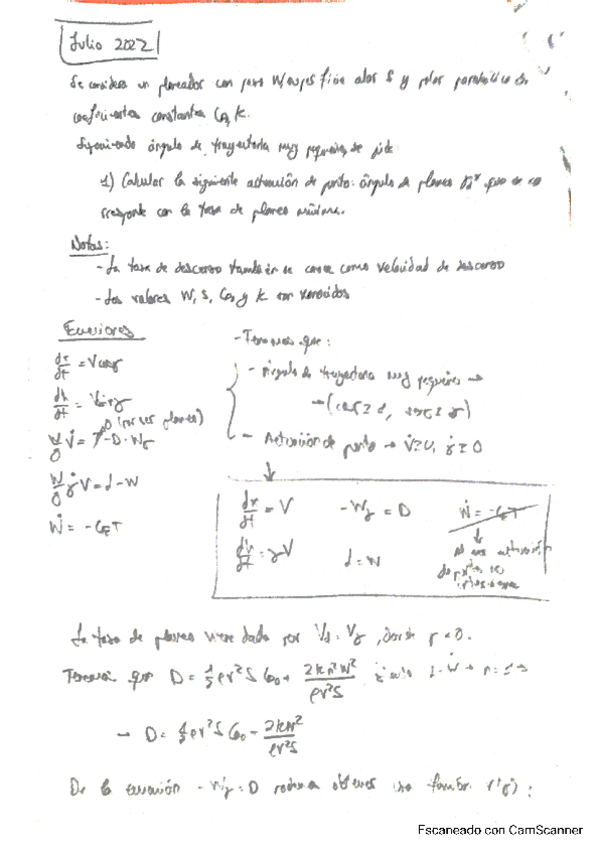 Julio 2022
Se considera un planeador con peso W, superficie alar S y polar parabólica de
coeficientes constantes C_D0, k.
Suponiendo ángulo de trayectoria muy pequeño, se pide
1) Calcular la siguiente actuación de punto: ángulo de planeo γ_d*, que se co
rresponde con la tasa de planeo mínima.
Notas:
- La tasa de descenso también se conoce como velocidad de descenso
- Los valores W, S, C_D0 y k son conocidos
Ecuaciones
dx/dt = V cosγ
dh/dt = V sinγ
0 (por ser planeo)
W/g V̇ = T - D - Wγ
W/g γ̇ V = L - W
Ẇ = -C_E T
- Tenemos que:
- Ángulo de trayectoria muy pequeño →
- Actuación de punto → V̇ ≃ 0, γ̇ ≃ 0
dx/dt = V   -Wγ = D   Ẇ = -C_E T
dh/dt = γV   L = W
La tasa de planeo viene dada por V_d = Vγ, donde γ < 0.
Tenemos que D = 1/2 ρV²S C_D0 + 2kn²W²/ρV²S
De la ecuación -Wγ = D podemos obtener una
Escaneado con CamScanner